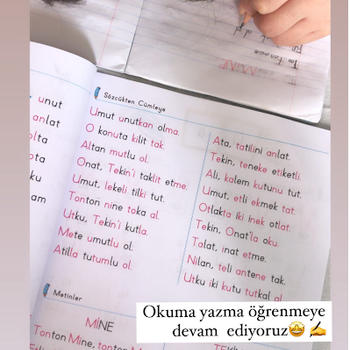 unut
anlat
olta
ota
ku
am
Sözcükten Cümleye
Umut unutkan olma.
O konuta kilit tak.
Altan mutlu ol.
Onat, Tekin'i taklit etme.
Umut, lekeli tilki tut.
Tonton nine toka al.
Utku, Tekin'i kutla.
Mete umutlu ol.
Atilla tutumlu ol.
Ata, tatilini anlat.
Tekin, teneke etiketli.
Ali, kalem kutunu tut.
Umut, etli ekmek tat.
Otlakta iki inek otlat.
Tekin, Onat'la oku.
Talat, inat etme.
Nilan, teli antene tak.
Utku iki kutu tutkal al.
Metinler
MİNE
Tonton Mine, tonton
Okuma yazma öğrenmeye
devam ediyoruz🤩✍